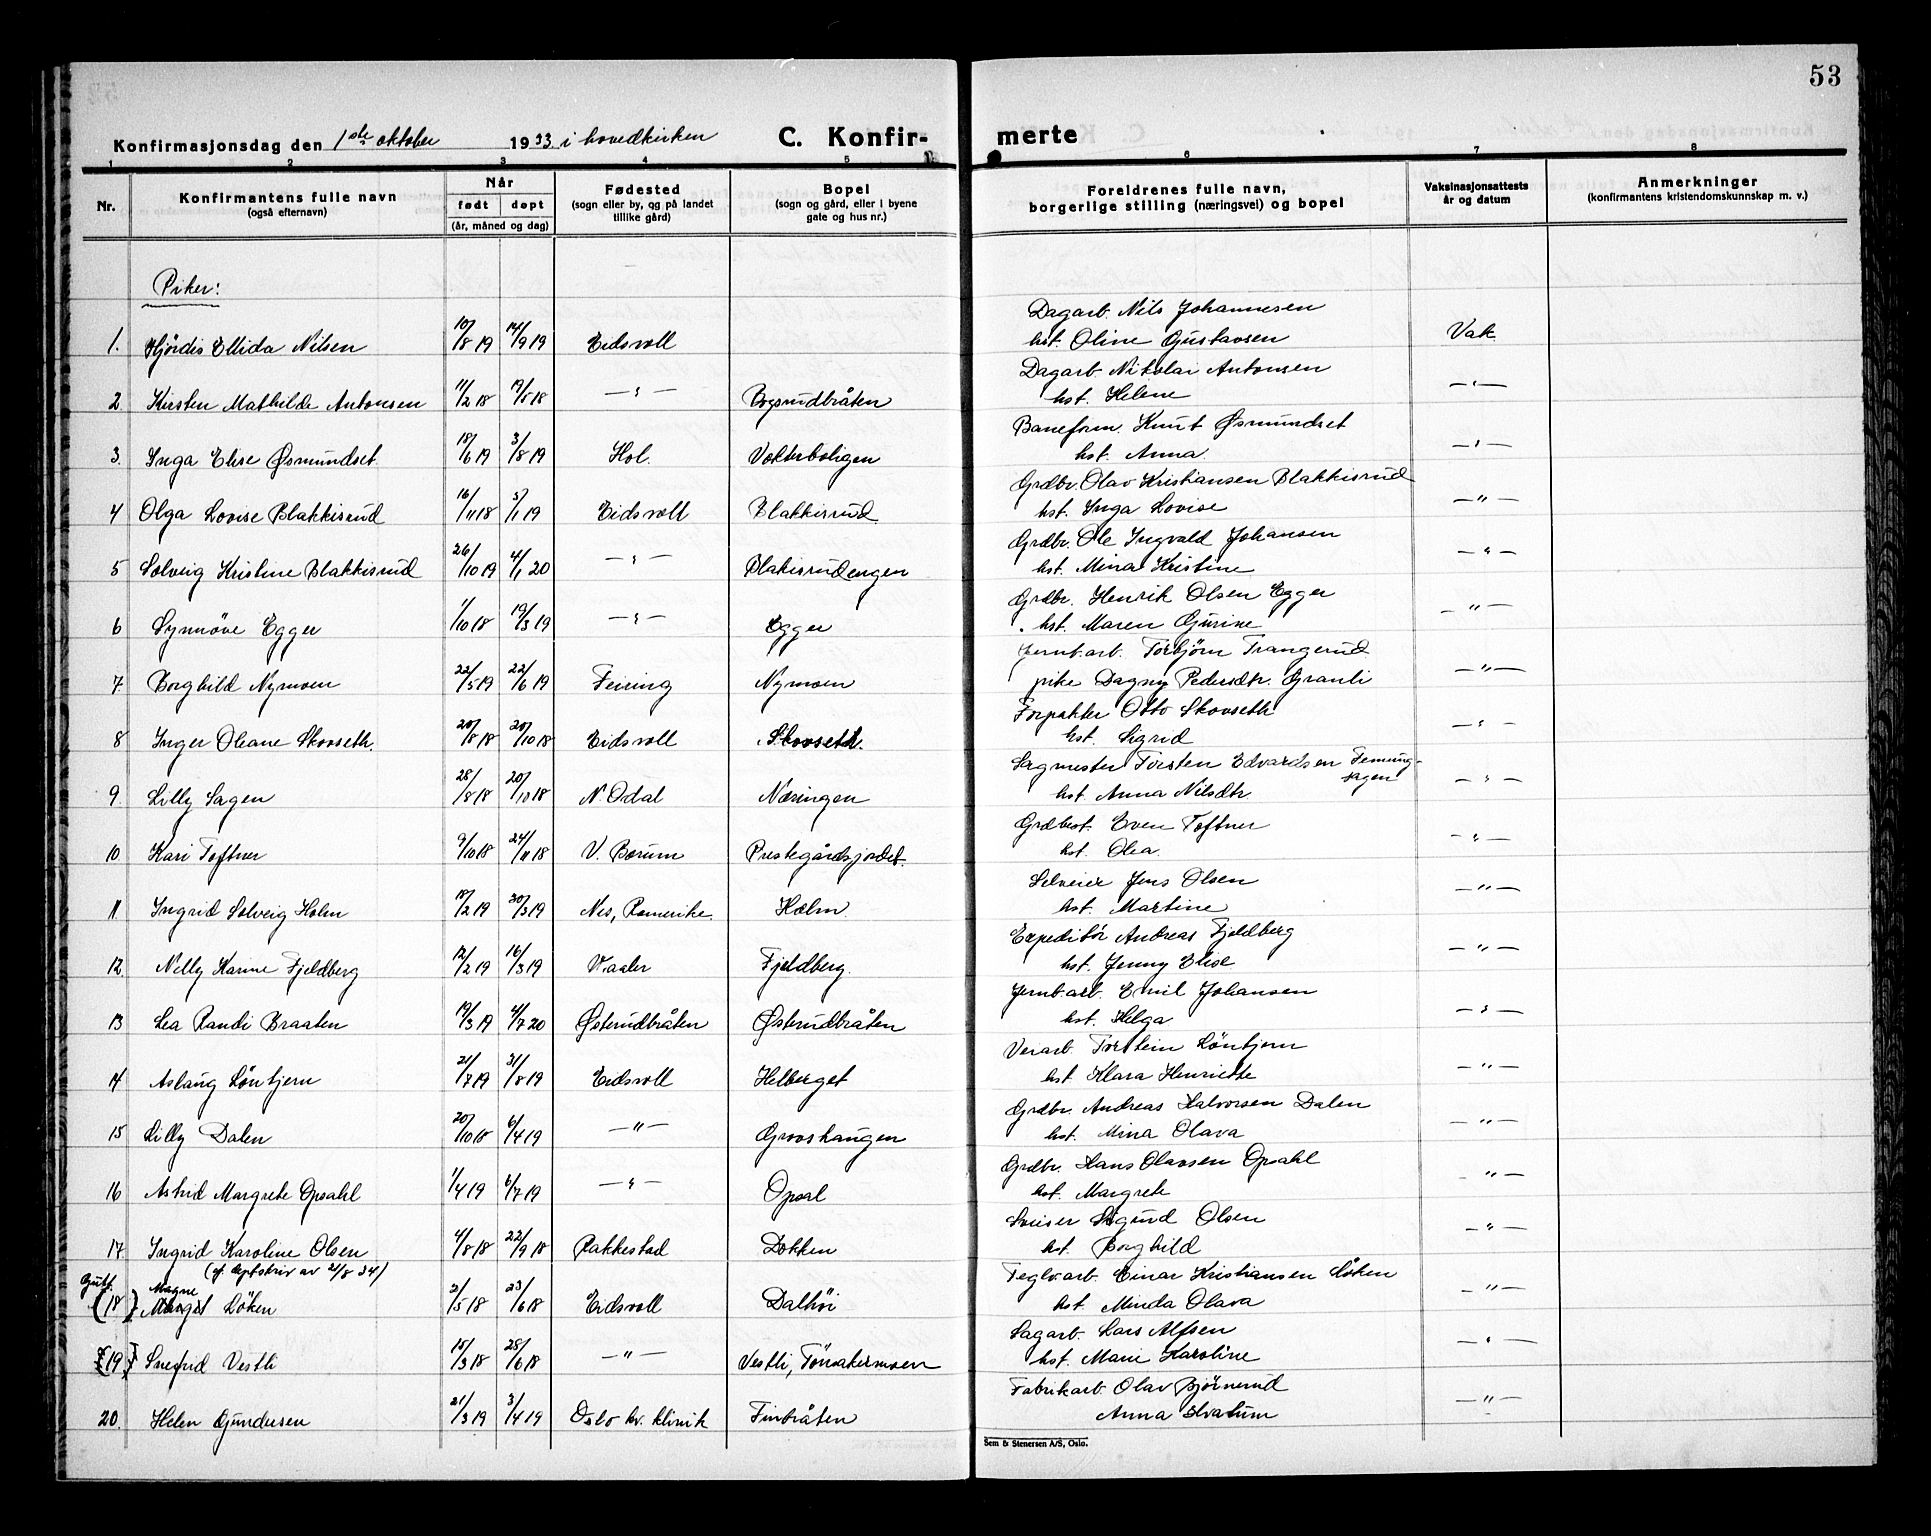 53
Konfirmasjonsdag den 1ste oktober 1933 i hovedkirken C. Konfir- merte
1 2 3 4 5 6 7 8
Nr. Konfirmantens fulle navn (også efternavn) Når født døpt (år, måned og dag) Fødested (sogn eller by, og på landet tillike gård) Bopel (sogn og gård, eller i byene gate og hus nr.) Foreldrenes fulle navn, borgerlige stilling (næringsvei) og bopel Vaksinasjonsattests år og datum Anmerkninger (konfirmantens kristendomskunnskap m. v.)
Piker:
Dagarb. Nils Johannesen
1. Hjördis Ellida Nilsen 10/8 19 14/9 19 Eidsvoll hst. Oline Gustavsen Vak.
Dagarb. Nikolai Antonsen
2. Kirsten Mathilde Antonsen 11/2 18 19/5 18 — " — Bogsrudbråten hst. Helene — " —
Baneform. Knut Øsmundset
3. Inga Elise Øsmundset 18/6 19 3/8 19 Hol. Vokterboligen hst. Anna. — " —
Grdbr. Olav Kristiansen Blakkisrud
4 Olga Lovise Blakkisrud 16/11 18 5/1 19 Eidsvoll Blakkisrud hst. Inga Lovise — " —
Grdbr. Ole Ingvald Johansen
5 Solveig Kristine Blakkisrud 26/10 19 4/1 20 — " — Blakisrudengen hst. Mina Kristine — " —
Grdbr. Henrik Olsen Egger
6 Synnöve Egger 1/10 18 19/3 19 — " — Egger hst. Maren Gurine — " —
Jernb.arb. Torbjörn Trangerud
7. Borghild Nymoen 22/5 19 22/6 19 Feiring Nymoen pike Dagny Pedersdtr. Granli — " —
Forpakter Otto Skovseth
8 Inger Oleane Skovseth. 20/8 18 20/10 18 Eidsvoll Skovseth. hst. Sigrid — " —
Sagmester Torsten Edvardsen Femung-
sagen
9. Lilly Sagen 28/8 18 20/10 18 N. Odal Næringen hst. Anna Nilsdtr. — " —
Grdbest. Even Toftner
10 Kari Toftner 9/10 18 24/11 18 V. Bærum Prestegårdsjordet. hst. Olea. — " —
Selveier Jens Olsen
11. Ingrid Solveig Holm 18/2 19 30/3 19 Nes, Romerike. Holm. hst. Martine — " —
Expeditör Andreas Fjeldberg
12. Nelly Karine Fjeldberg 12/2 19 16/3 19 Vaaler Fjeldberg. hst. Jenny Elise — " —
Jernb.arb. Emil Johansen
13 Lea Randi Braaten 19/3 19 4/7 20 Østerudbråten Østerudbråten hst. Helga — " —
Verarb. Torstein Löntjern
14 Aslaug Löntjern 21/7 19 31/8 19 Eidsvoll Helberget hst. Klara Henriette — " —
Grdbr. Andreas Halvorsen Dalen
15 Lilly Dalen 20/10 18 6/4 19 — " — Grooshaugen hst. Mina Olava — " —
Grdbr. Hans Olavsen Opsahl
16 Astrid Margrete Opsahl 1/4 19 6/7 19 — " — Opsal hst. Margrete — " —
Sveiser Sigurd Olsen
17. Ingrid Karoline Olsen 4/8 18 22/9 18 Rakkestad Dokken hst. Borghild — " —
(cf. dept.skriv av 21/8 34)
Gutt. Magne Teglv.arb. Einar Kristiansen Löken
(18) Margit Löken 2/5 18 23/6 18 Eidsvoll Dalhöi hst. Minda Olava — " —
Sagarb. Lars Alfsen
19. Snefrid Vestli 15/3 18 28/6 18 — " — Vestli, Tönsakermoen hst. Marie Karoline — " —
Fabrikarb. Olav Björnerud
20. Helen Gundersen 21/3 19 3/4 19 Oslo kv. klinik Finbråten Anna Hvalum — " —
Sem & Stenersen A/S, Oslo.